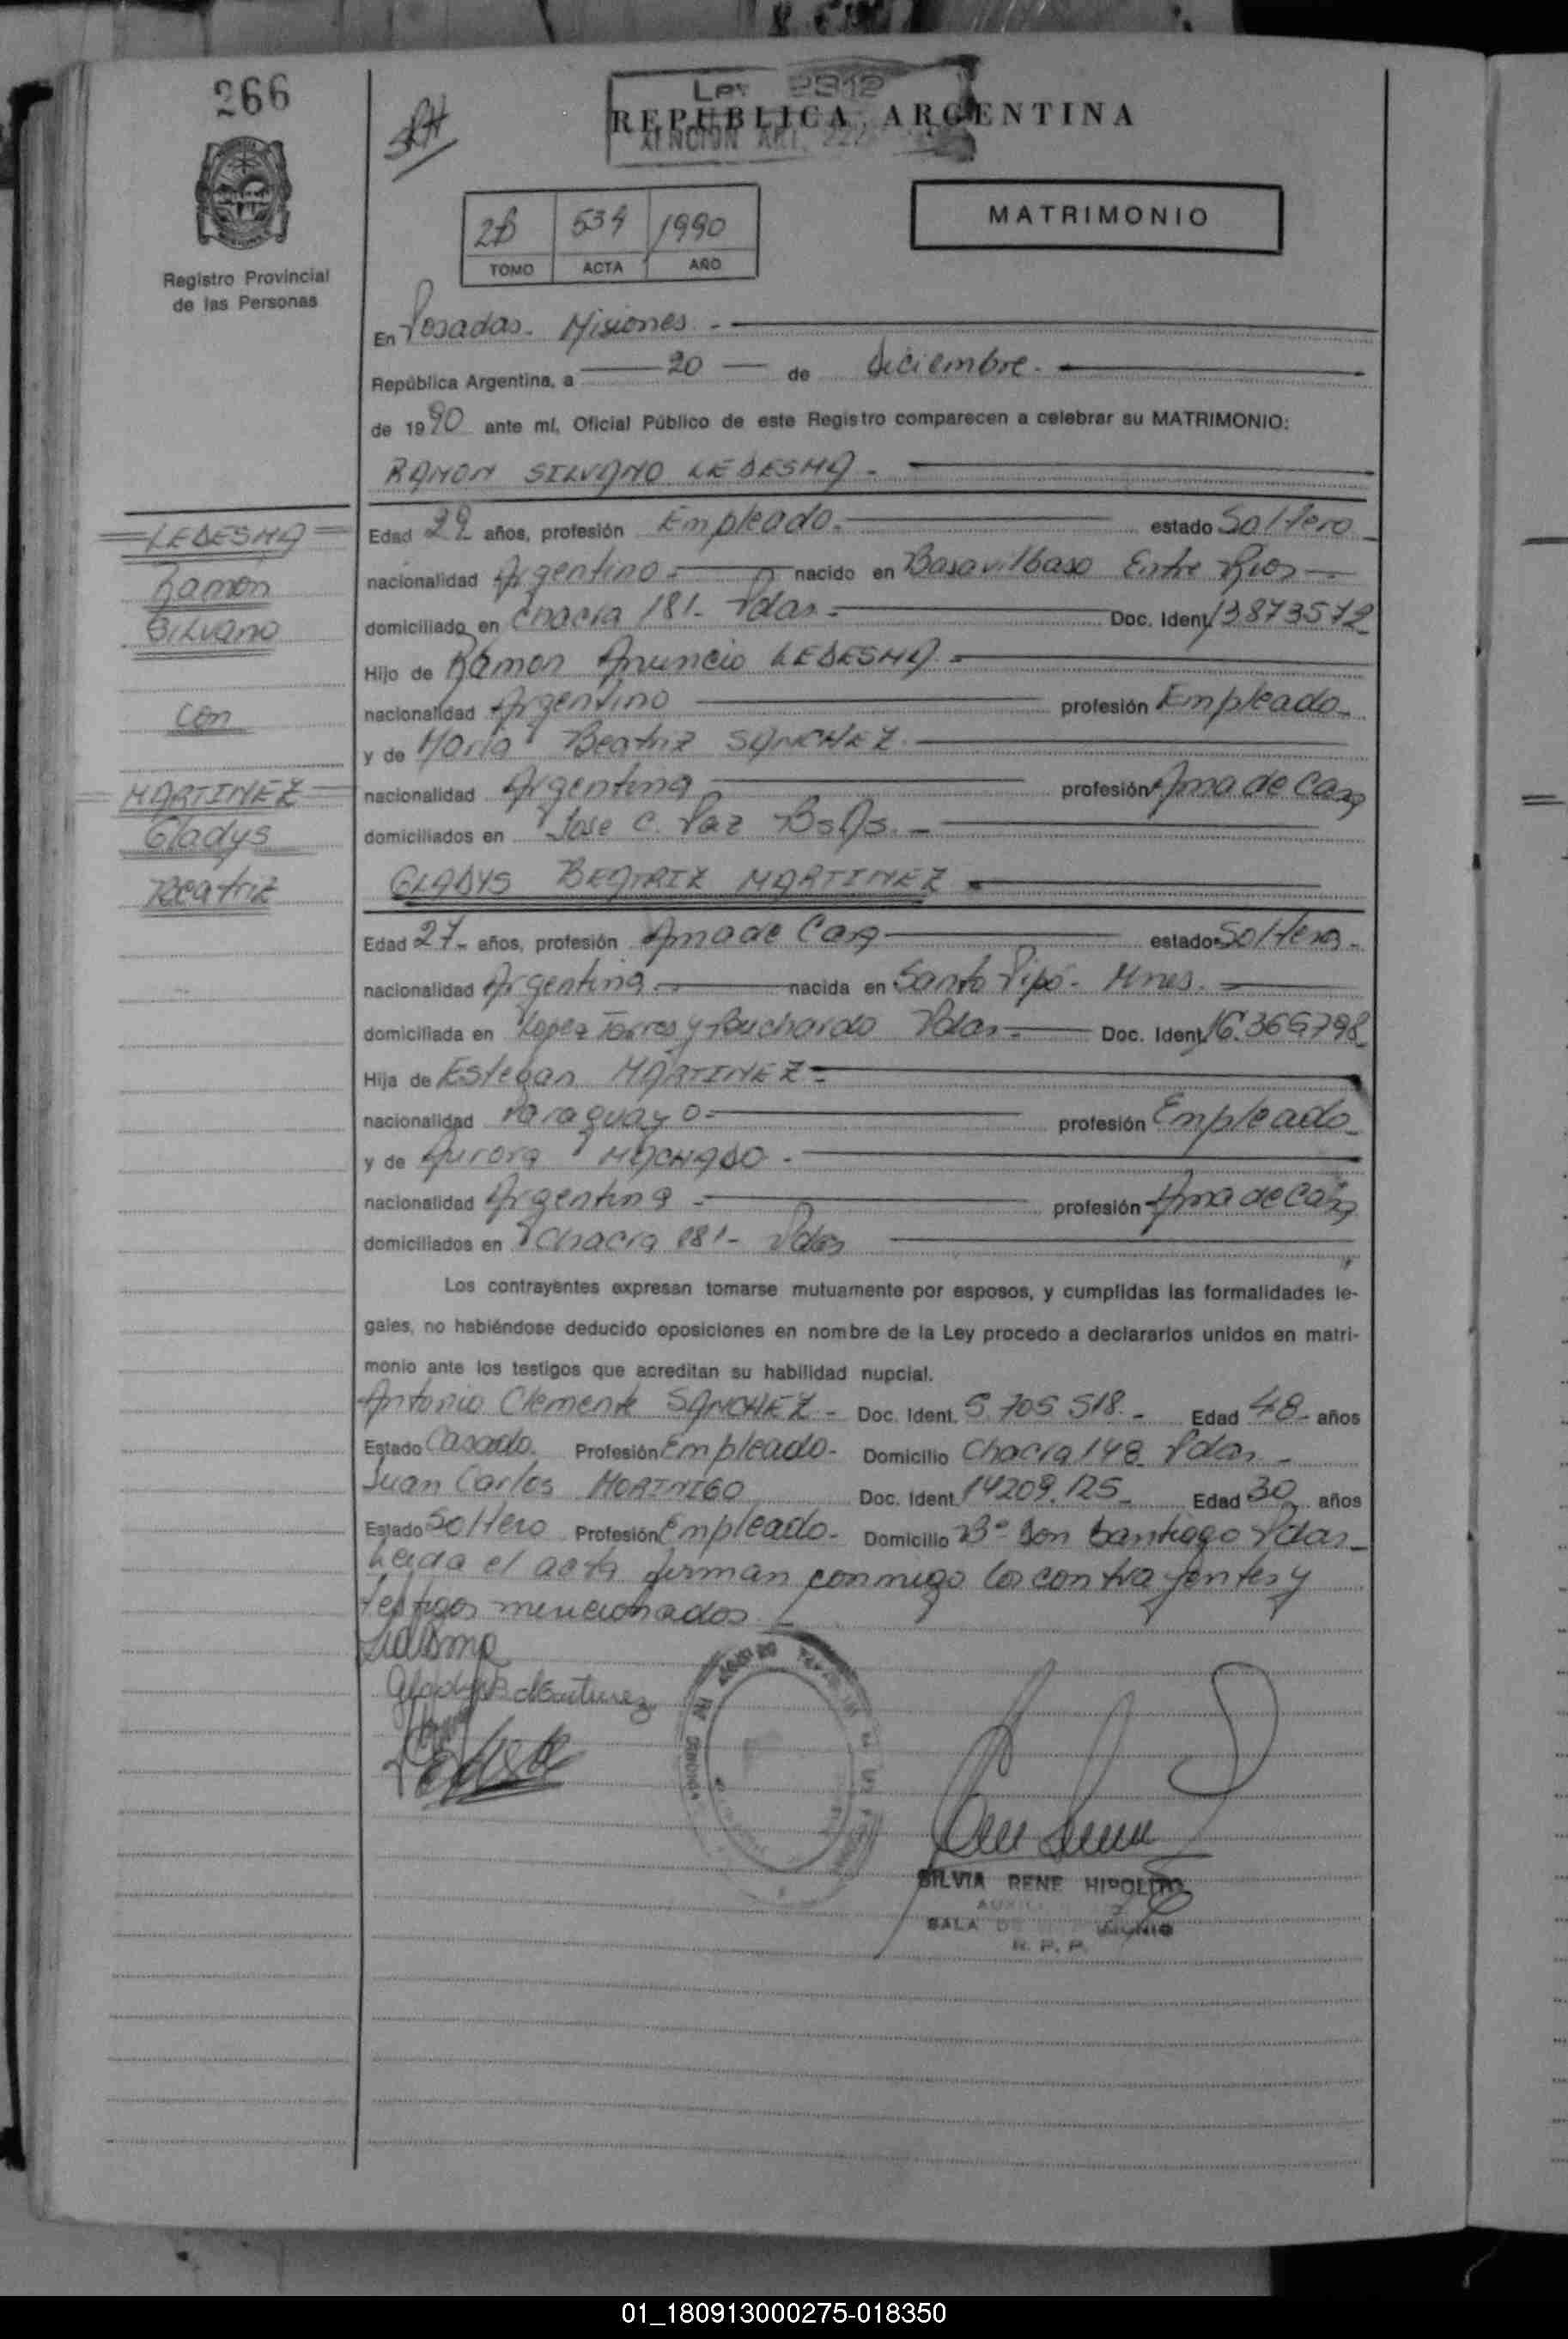 266
Ley 2912
REPUBLICA ARGENTINA
ATENCION ART.
Registro Provincial
de las Personas
2B 534 1990
TOMO ACTA AÑO
MATRIMONIO
En Posadas. Misiones.-
República Argentina, a 20 de diciembre.-
de 1990 ante mí, Oficial Público de este Registro comparecen a celebrar su MATRIMONIO:
RAMON SILVANO LEDESMA.-
LEDESMA
Ramón
Silvano
con
MARTINEZ
Gladys
Beatriz
Edad 29 años, profesión Empleado.- estado Soltero
nacionalidad Argentino.- nacido en Basavilbaso Entre Rios-
domiciliado en Chacra 181- Pdas.- Doc. Ident. 13873572
Hijo de Ramon Anuncio LEDESMA.-
nacionalidad Argentino profesión Empleado-
y de Maria Beatriz SANCHEZ.-
nacionalidad Argentina profesión Ama de Casa
domiciliados en Jose C. Paz BsAs.-
GLADYS BEATRIZ MARTINEZ-
Edad 27- años, profesión Ama de Casa estado Soltera-
nacionalidad Argentina.- nacida en Santo Pipó- Mnes.-
domiciliada en Lopez Torres y Bouchardo Pdas.- Doc. Ident. 16.369798
Hija de Esteban MARTINEZ-
nacionalidad Paraguayo- profesión Empleado-
y de Aurora MACHADO-
nacionalidad Argentina- profesión Ama de Casa
domiciliados en Chacra 181- Pdas
Los contrayentes expresan tomarse mutuamente por esposos, y cumplidas las formalidades le-
gales, no habiéndose deducido oposiciones en nombre de la Ley procedo a declararlos unidos en matri-
monio ante los testigos que acreditan su habilidad nupcial.
Antonio Clemente SANCHEZ- Doc. Ident. 5.705518.- Edad 48- años
Estado Casado. Profesión Empleado- Domicilio Chacra 148 Pdas.-
Juan Carlos MORINIGO Doc. Ident. 14209.125- Edad 30 años
Estado Soltero Profesión Empleado- Domicilio Bº Don Santiago Pdas-
Leida el acta firman conmigo los contrayentes y
testigos mencionados
Ledesma
Gladys B. Martinez
SILVIA RENE HIPOLITO
SALA
R. P. P.
01_180913000275-018350